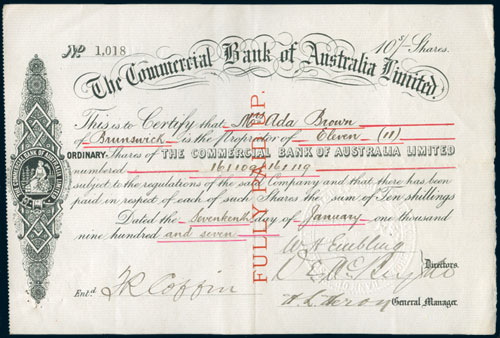 No 1,018
10s/ Shares.
The Commercial Bank of Australia Limited.
This is to Certify that Mrs Ada Brown
of Brunswick is the Proprietor of Eleven (11)
ORDINARY Shares of THE COMMERCIAL BANK OF AUSTRALIA LIMITED
numbered
subject to the regulations of the said Company and that there has been
paid in respect of each of such Shares the sum of Ten shillings
Dated the Seventeenth day of January one thousand
nine hundred and seven
FULLY PAID UP.
W H Embling
Directors.
Entd. J R Coffin
General Manager.